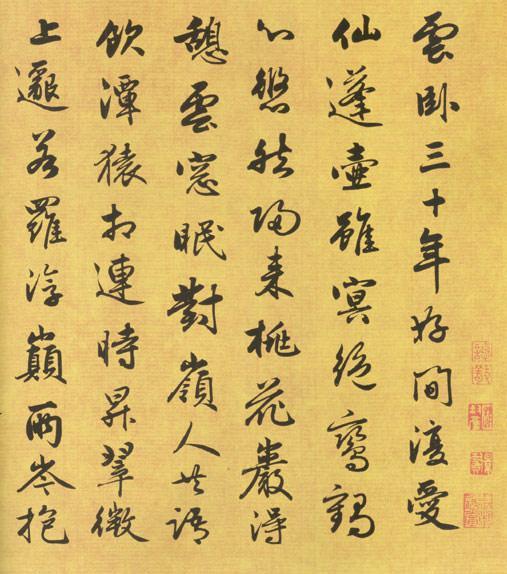 雲臥三十年好間復愛
仙蓬壺雖冥絕鸞鶴
心悠然歸來桃花巖得
憩雲窓眠對嶺人共語
飲潭猿相連時昇翠微
上邈若羅浮巔兩岑抱